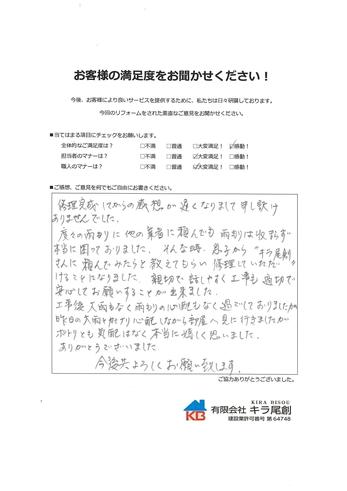 お客様の満足度をお聞かせください！
今後、お客様により良いサービスを提供するために、私たちは日々研鑽しております。
今回のリフォームをされた素直なご意見をお聞かせください。
■当てはまる項目にチェックをお願いします。
全体的なご満足度は？ □不満 □普通 □大変満足！ ☑感動！
担当者のマナーは？ □不満 □普通 ☑大変満足！ □感動！
職人のマナーは？ □不満 □普通 ☑大変満足！ □感動！
■ご感想、ご意見を何でもご自由にお書きください。
修理完成してからの感想が遅くなりまして申し訳
ありませんでした。
度々の雨もりに他の業者に頼んでも雨もりは収まらず
本当に困っておりました。そんな時、息子から"キラ尾創"
さんに頼んでみたらと教えてもらい修理していただ
けることになりました。親切で話しやすく工事も適切で
安心してお願いすることが出来ました。
工事後大雨もなく雨もりの心配もなく過ごしておりましたが
昨日の大雨 心配しながら部屋へ見に行きましたが
ポトリとも 本当に嬉しく思いました。
ありがとうございました。
今後共よろしくお願い致します。
ご協力ありがとうございました。
KIRA BISOU
KB 有限会社 キラ尾創
建設業許可番号 第64748